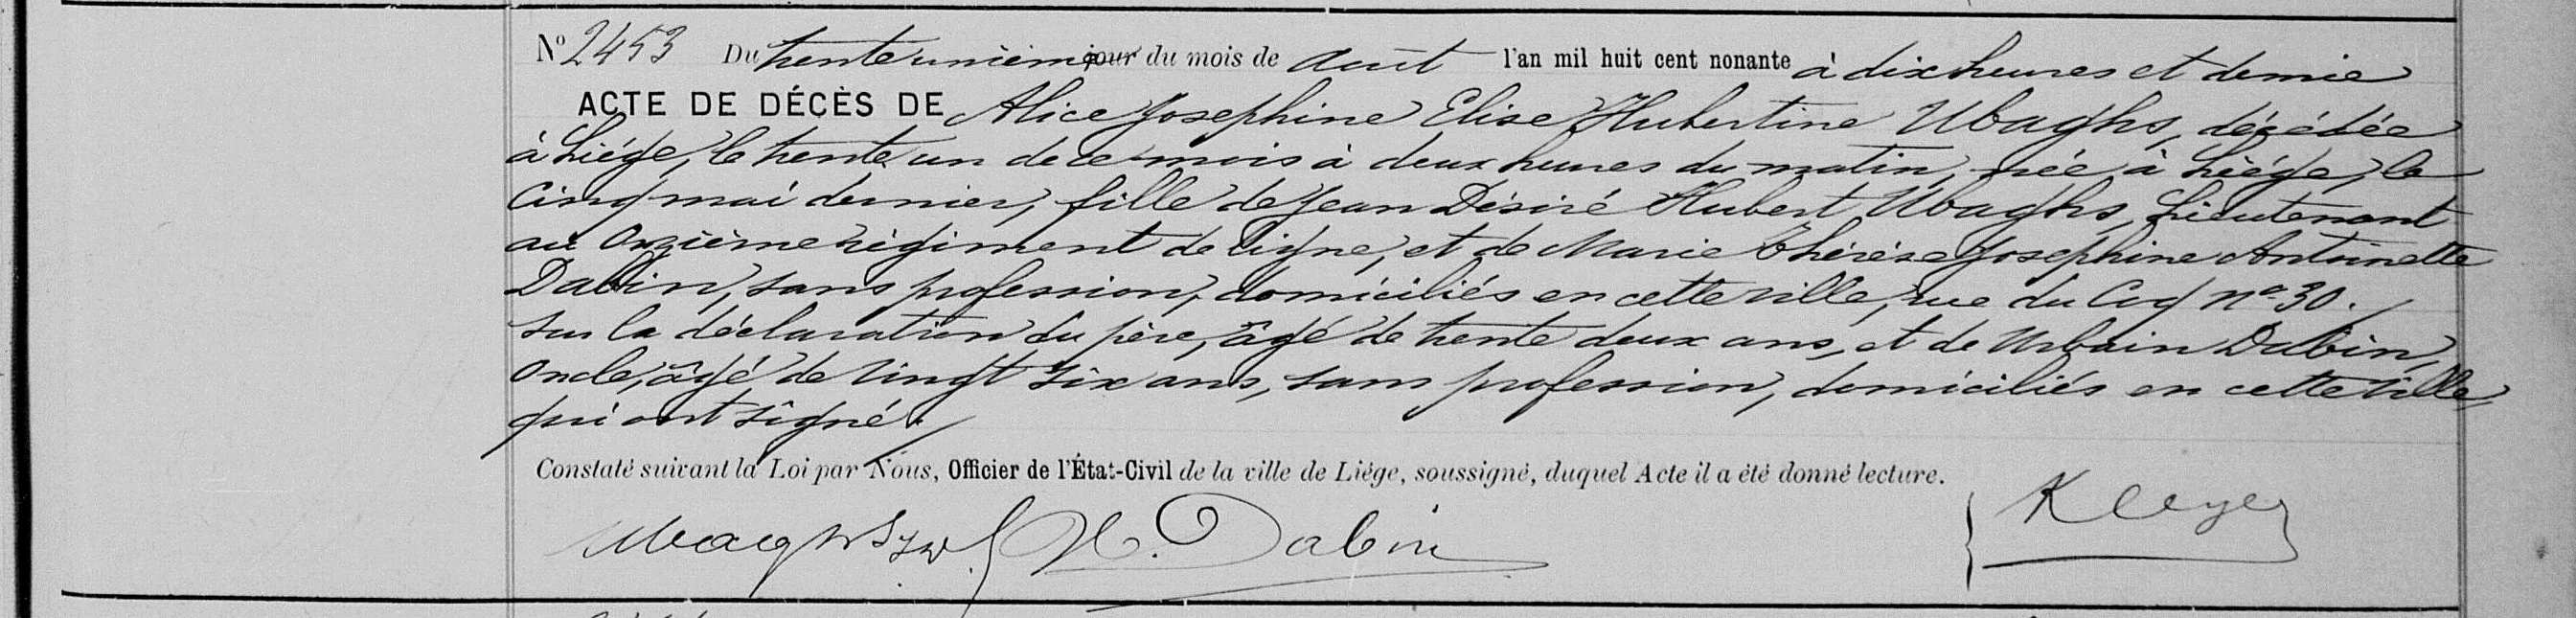 Nº 2453 Du trente unième jour du mois de Août l'an mil huit cent nonante à dix heures et demie
ACTE DE DÉCÈS DE Alice Josephine Elise Hubertine Ubaghs, décédée
à Liége, le trente un de ce mois à deux heures du matin, née à Liége, le
Cinq mai dernier, fille de Jean Désiré Hubert Ubaghs, Lieutenant
au Onzième régiment de ligne, et de Marie Thérèse Josephine Antoinette
Dabin, sans profession, domiciliés en cette ville, rue du Coq nº 30.
Sur la déclaration du père, âgé de trente deux ans, et de Urbain Dabin,
Oncle, âgé de vingt six ans, sans profession, domiciliés en cette ville,
qui ont signé.
Constaté suivant la Loi par Nous, Officier de l'État-Civil de la ville de Liége, soussigné, duquel Acte il a été donné lecture.
Ubaghs Dabin Kleyer